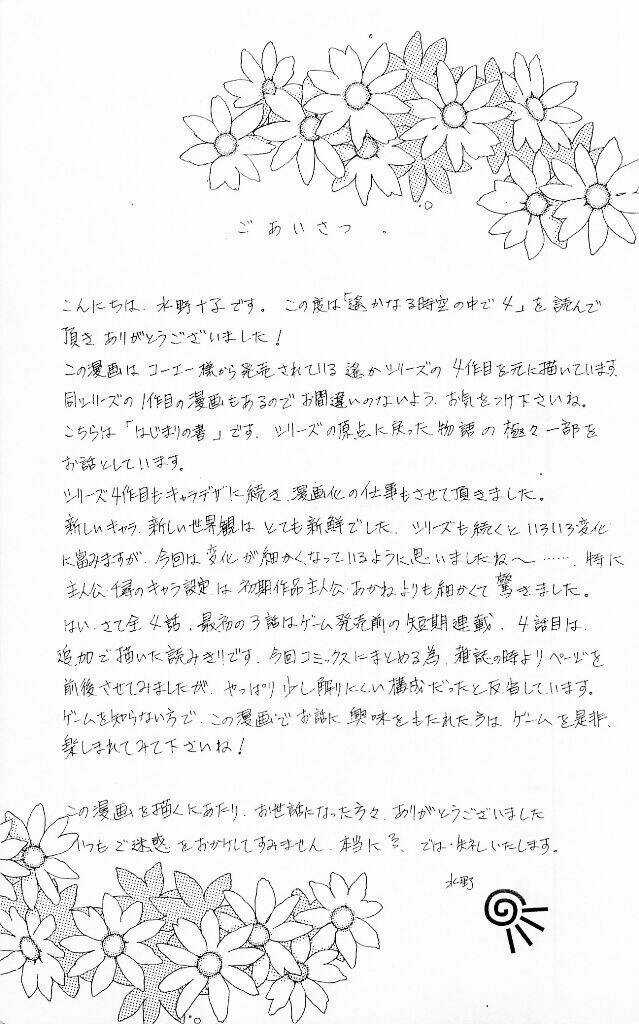 ごあいさつ。
こんにちは、水野十子です。この度は「遙かなる時空の中で4」を読んで
頂きありがとうございました！
この漫画はコーエー様から発売されている遙かシリーズの4作目を元に描いています。
同シリーズの1作目の漫画もあるのでお間違いのないよう、お気をつけ下さいね。
こちらは「はじまりの者」です。シリーズの原点に戻った物語の極々一部を
お話としています。
シリーズ4作目もキャラデザに続き、漫画化の仕事もさせて頂きました。
新しいキャラ、新しい世界観はとても新鮮でした。シリーズも続くといろいろ変化
に富みますが、今回は変化が細かくなっているように思いましたね〜……。特に
主人公・千尋のキャラ設定は初期作品主人公・あかねよりも細かくて驚きました。
はい、さて全4話、最初の3話はゲーム発売前の短期連載、4話目は、
追加で描いた読みきりです。今回コミックスにまとめる為、雑誌の時よりページを
前後させてみましたが、やっぱり少し解りにくい構成だったと反省しています。
ゲームを知らない方で、この漫画でお話に興味をもたれた方は、ゲームを是非、
楽しまれてみて下さいね！
この漫画を描くにあたり、お世話になった方々、ありがとうございました
いつもご迷惑をおかけしてすみません、本当に。では・失礼いたします。
水野